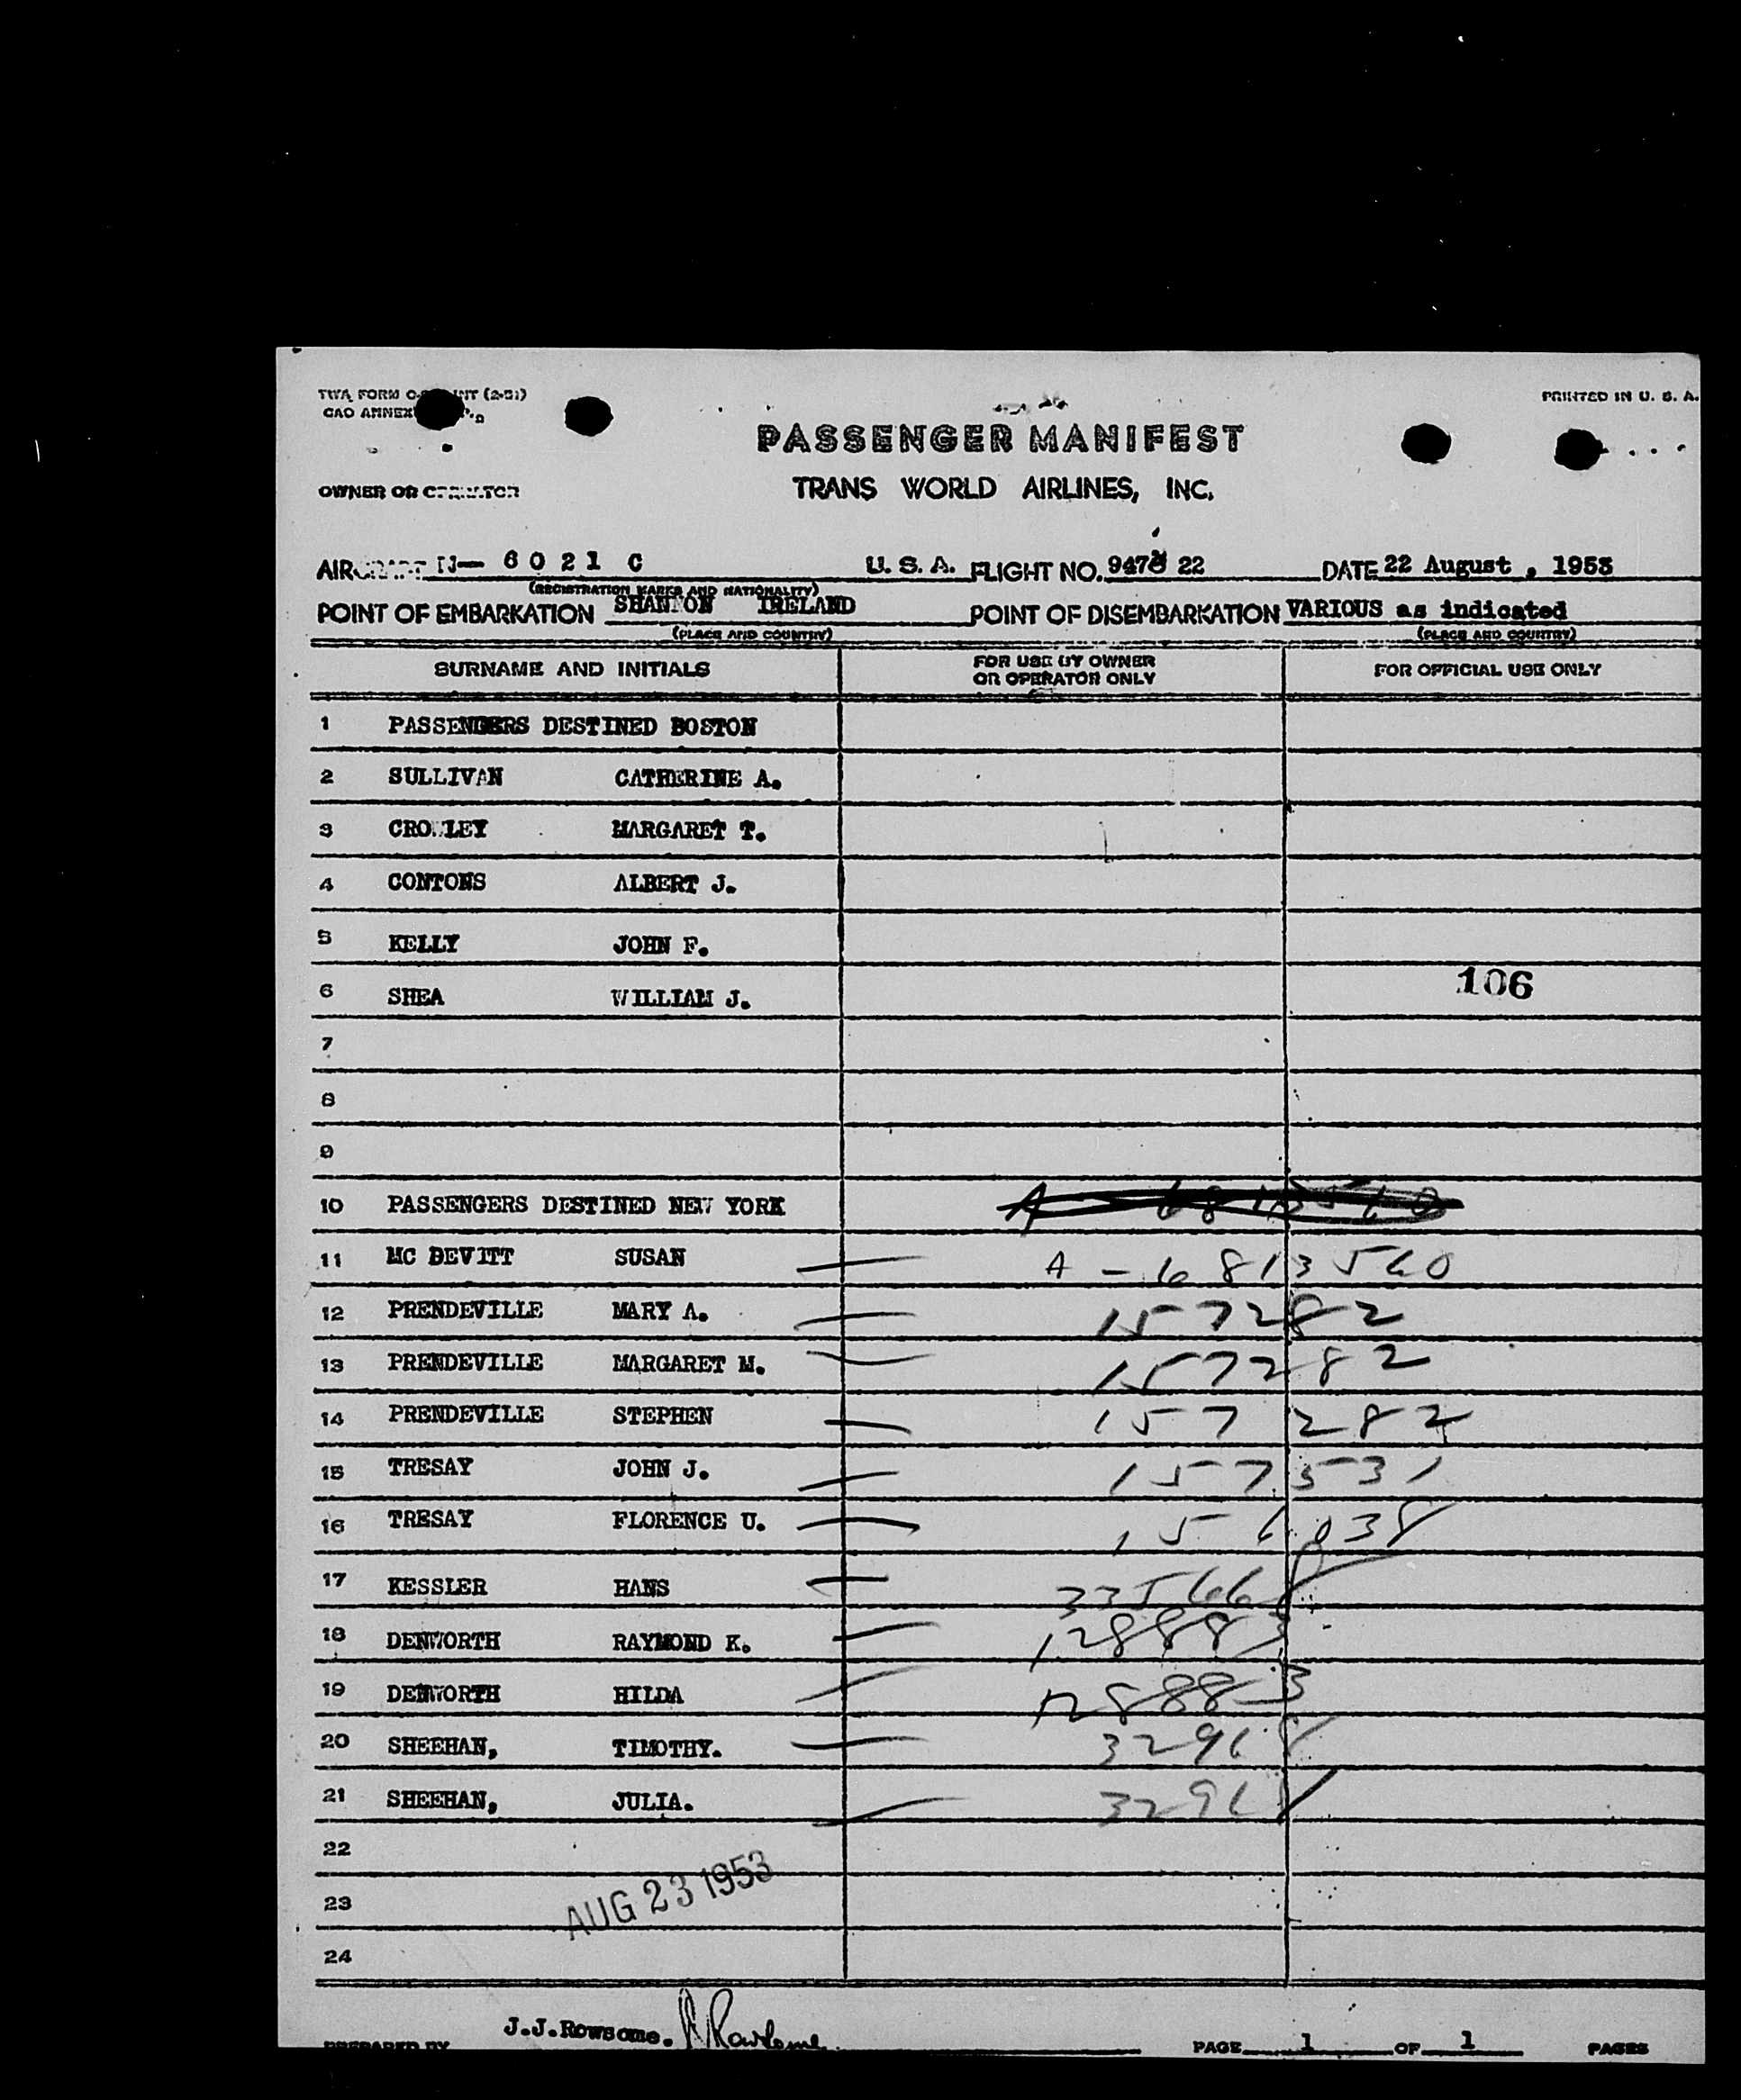 TWA FORM (2-51)
PRINTED IN U. S. A.
CAO ANNEX
PASSENGER MANIFEST
OWNER OR OPERATOR TRANS WORLD AIRLINES, INC.
AIRCRAFT N- 6 0 2 1 C U. S. A. FLIGHT NO. 22 DATE 22 August , 1953
(REGISTRATION MARKS AND NATIONALITY)
POINT OF EMBARKATION SHANNON IRELAND POINT OF DISEMBARKATION VARIOUS as indicated
(PLACE AND COUNTRY) (PLACE AND COUNTRY)
SURNAME AND INITIALS FOR USE BY OWNER OR OPERATOR ONLY FOR OFFICIAL USE ONLY
1 PASSENGERS DESTINED BOSTON
2 SULLIVAN CATHERINE A.
3 CROWLEY MARGARET T.
4 CONTONS ALBERT J.
5 KELLY JOHN F.
6 SHEA WILLIAM J. 106
7
8
9
10 PASSENGERS DESTINED NEW YORK
11 MC DEVITT SUSAN A - 6813560
12 PRENDEVILLE MARY A. 157282
13 PRENDEVILLE MARGARET M. 157282
14 PRENDEVILLE STEPHEN 157282
15 TRESAY JOHN J. 157531
16 TRESAY FLORENCE U.
17 KESSLER HANS 335668
18 DENWORTH RAYMOND K. 128883
19 DENWORTH HILDA 128883
20 SHEEHAN, TIMOTHY. 32968
21 SHEEHAN, JULIA. 32968
22
23 AUG 23 1953
24
PREPARED BY J.J.Rowsome. J Rowsome PAGE 1 OF 1 PAGES